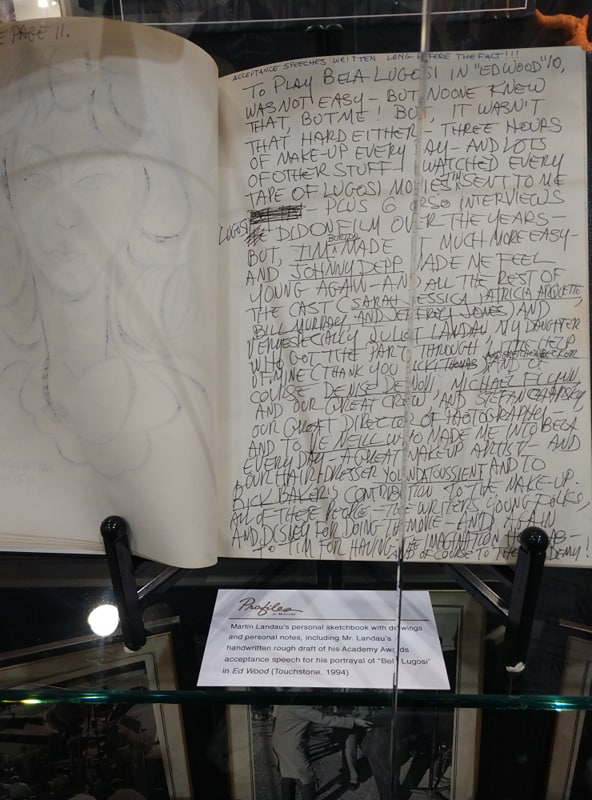 E PAGE 11.
ACCEPTANCE SPEECHES WRITTEN LONG BEFORE THE FACT!!!
TO PLAY BELA LUGOSI IN "ED WOOD"
WAS NOT EASY - BUT NOONE KNEW
THAT, BUT ME! BUT, IT WASN'T
THAT HARD EITHER - THREE HOURS
OF MAKE-UP EVERY AY - AND LOTS
OF OTHER STUFF - I WATCHED EVERY
TAPE OF LUGOSI MO IES TIM SENT TO ME
- PLUS 6 OR SO INTERVIEWS
LUGOSI DID ON FILM OVER THE YEARS -
BUT, TIM BURTON MADE IT MUCH MORE EASY -
AND JOHNNY DEPP ADE ME FEEL
YOUNG AGAIN - AND ALL THE REST OF
THE CAST (SARAH ESSICA, PATRICIA ARQUETTE,
BILL MURRAY, AND JEFFREY JONES) AND
VERY ESPECIALLY JULIET LANDAU, MY DAUGHTER
WHO GOT THE PART THROUGH NO HELP
OF MINE (THANK YOU VICKI THOMAS) AND OF
COURSE DENISE DE NOVI, MICHAEL FLYNN,
AND OUR GREAT CREW AND STEFAN CZAPSKY
OUR GREAT DIRECTOR OF PHOTOGRAPHY -
AND TO VE NEILL WHO MADE ME INTO BELA
EVERY DAY - A GREAT MAKEUP ARTIST - AND
OUR HAIRDRESSER AND TO
RICK BAKER'S CONTRIBUTION TO THE MAKE-UP.
ALL OF THESE PEOPLE - THE WRITERS, YOUNG FOLKS,
AND DISNEY FOR DOING THE MOVIE - AND AGAIN
TO TIM FOR HAVING THE IMAGINATION HE HAS -
OF COURSE TO THE ACADEMY!
Profiles
in History
Martin Landau's personal sketchbook with drawings
and personal notes, including Mr. Landau's
handwritten rough draft of his Academy Awards
acceptance speech for his portrayal of "Bela Lugosi"
in Ed Wood (Touchstone, 1994)